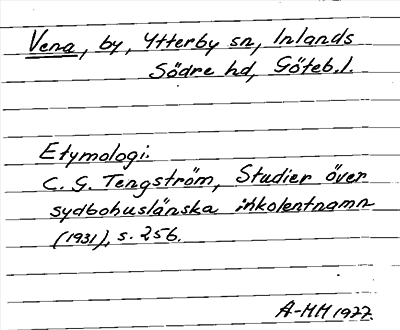 Vena, by, Ytterby sn, Inlands
Södre hd, Göteb. l.
Etymologi:
C. G. Tengström, Studier över
sydbohuslänska inkolentnamn
(1931), s. 256.
A-HH 1977